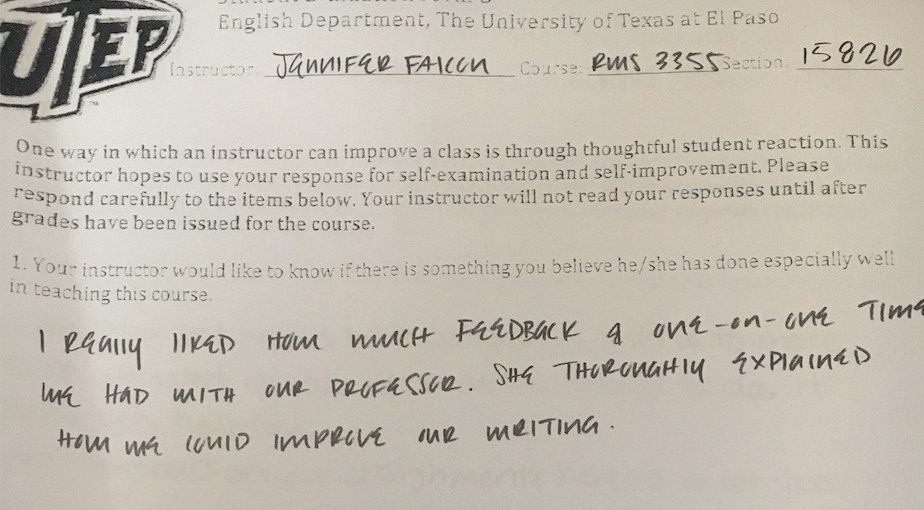 UTEP
English Department, The University of Texas at El Paso
Instructor: JENNIFER FALCON Course: RWS 3355 Section: 15826
One way in which an instructor can improve a class is through thoughtful student reaction. This
instructor hopes to use your response for self-examination and self-improvement. Please
respond carefully to the items below. Your instructor will not read your responses until after
grades have been issued for the course.
1. Your instructor would like to know if there is something you believe he/she has done especially well
in teaching this course.
I REALLY LIKED HOW MUCH FEEDBACK & ONE-ON-ONE TIME
WE HAD WITH OUR PROFESSOR. SHE THOROUGHLY EXPLAINED
HOW WE COULD IMPROVE OUR WRITING.